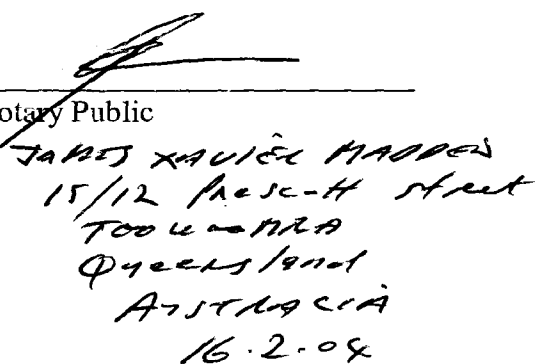 Notary Public
JAMES XAVIER MADDEN
15/12 Prescott Street
TOOWOOMBA
Queensland
AUSTRALIA
16.2.04